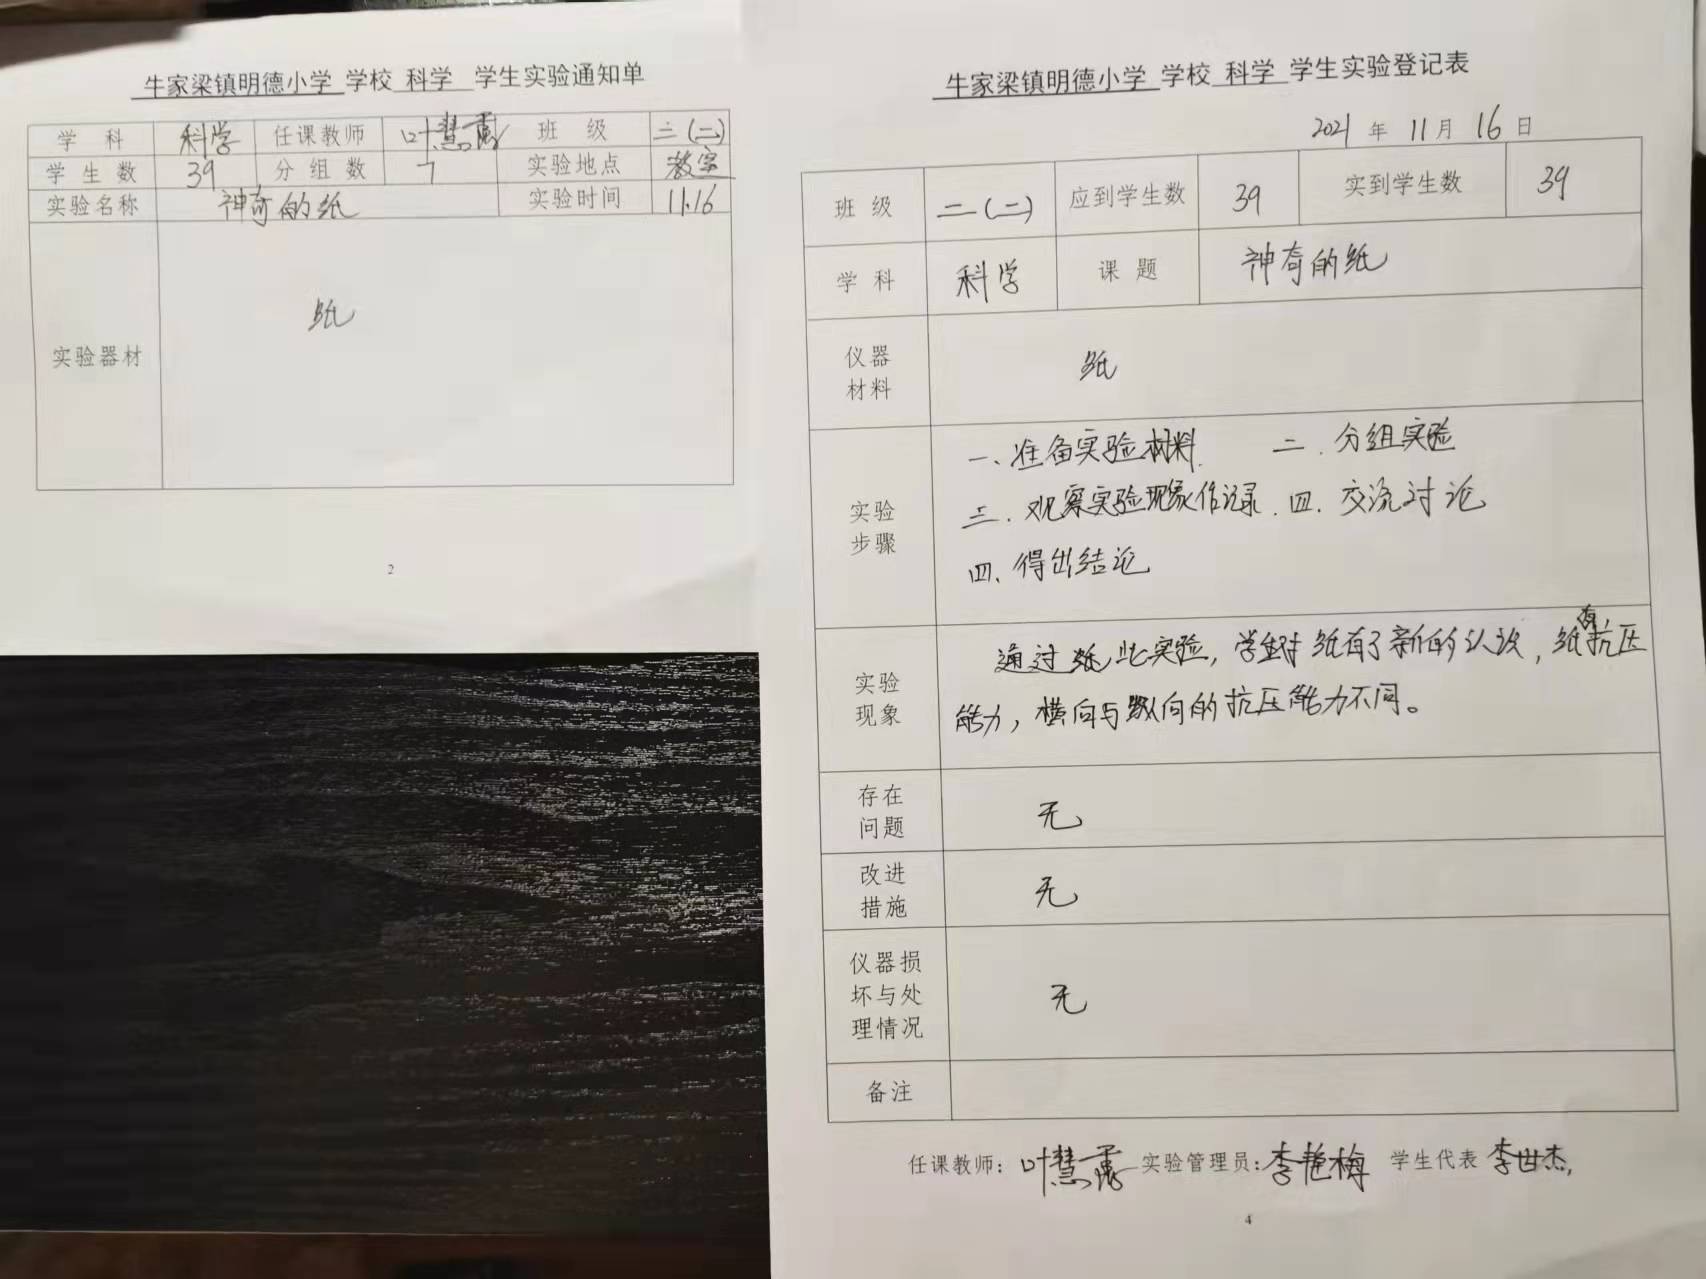 牛家梁镇明德小学 学校 科学 学生实验通知单
学 科 科学 任课教师 叶慧露 班 级 二(二)
学 生 数 39 分 组 数 7 实验地点 教室
实验名称 神奇的纸 实验时间 11.16
实验器材 纸
2
牛家梁镇明德小学 学校 科学 学生实验登记表
2021 年 11 月 16 日
班 级 二(二) 应到学生数 39 实到学生数 39
学 科 科学 课 题 神奇的纸
仪器
材料
纸
实验
步骤
一、准备实验材料. 二.分组实验
三.观察实验现象作记录.四.交流讨论
四、得出结论
实验
现象
通过纸此实验,学生对纸有了新的认识,纸有抗压
能力,横向与纵向的抗压能力不同。
存在
问题
无
改进
措施
无
仪器损
坏与处
理情况
无
备注
任课教师: 叶慧露 实验管理员: 李艳梅 学生代表 李世杰
4